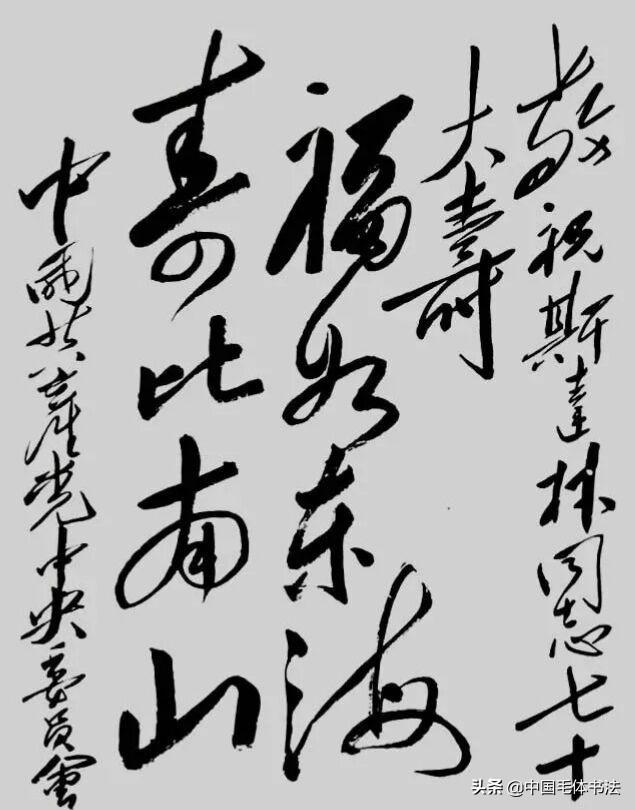 敬祝斯達林同志七十
大壽
福如东海
寿比南山
中國共產党中央委員會
头条 @中国毛体书法